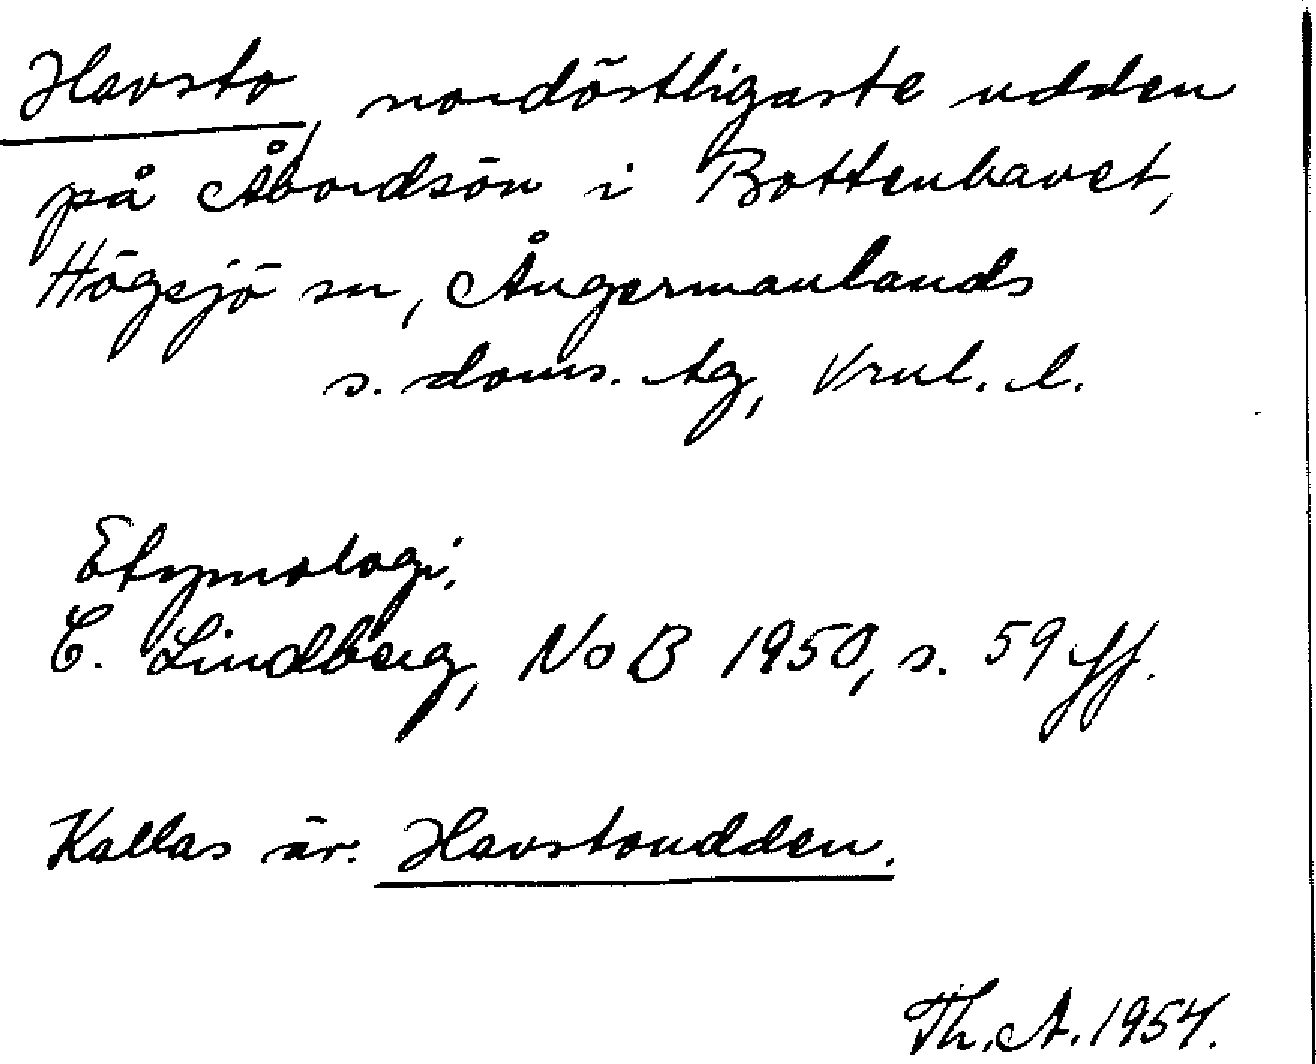 Havsto, nordöstligaste udden
på Åbordsön i Bottenhavet,
Högsjö sn, Ångermanlands
s. doms. tg, Vrnl. l.
Etymologi.
C. Lindberg, NoB 1950, s. 59 ff.
Kallas äv. Havstoudden.
Th. A. 1954.